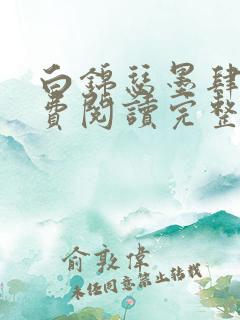 白錦瑟墨肆
費閱讀完整
俞敦偉
未经同意禁止转载